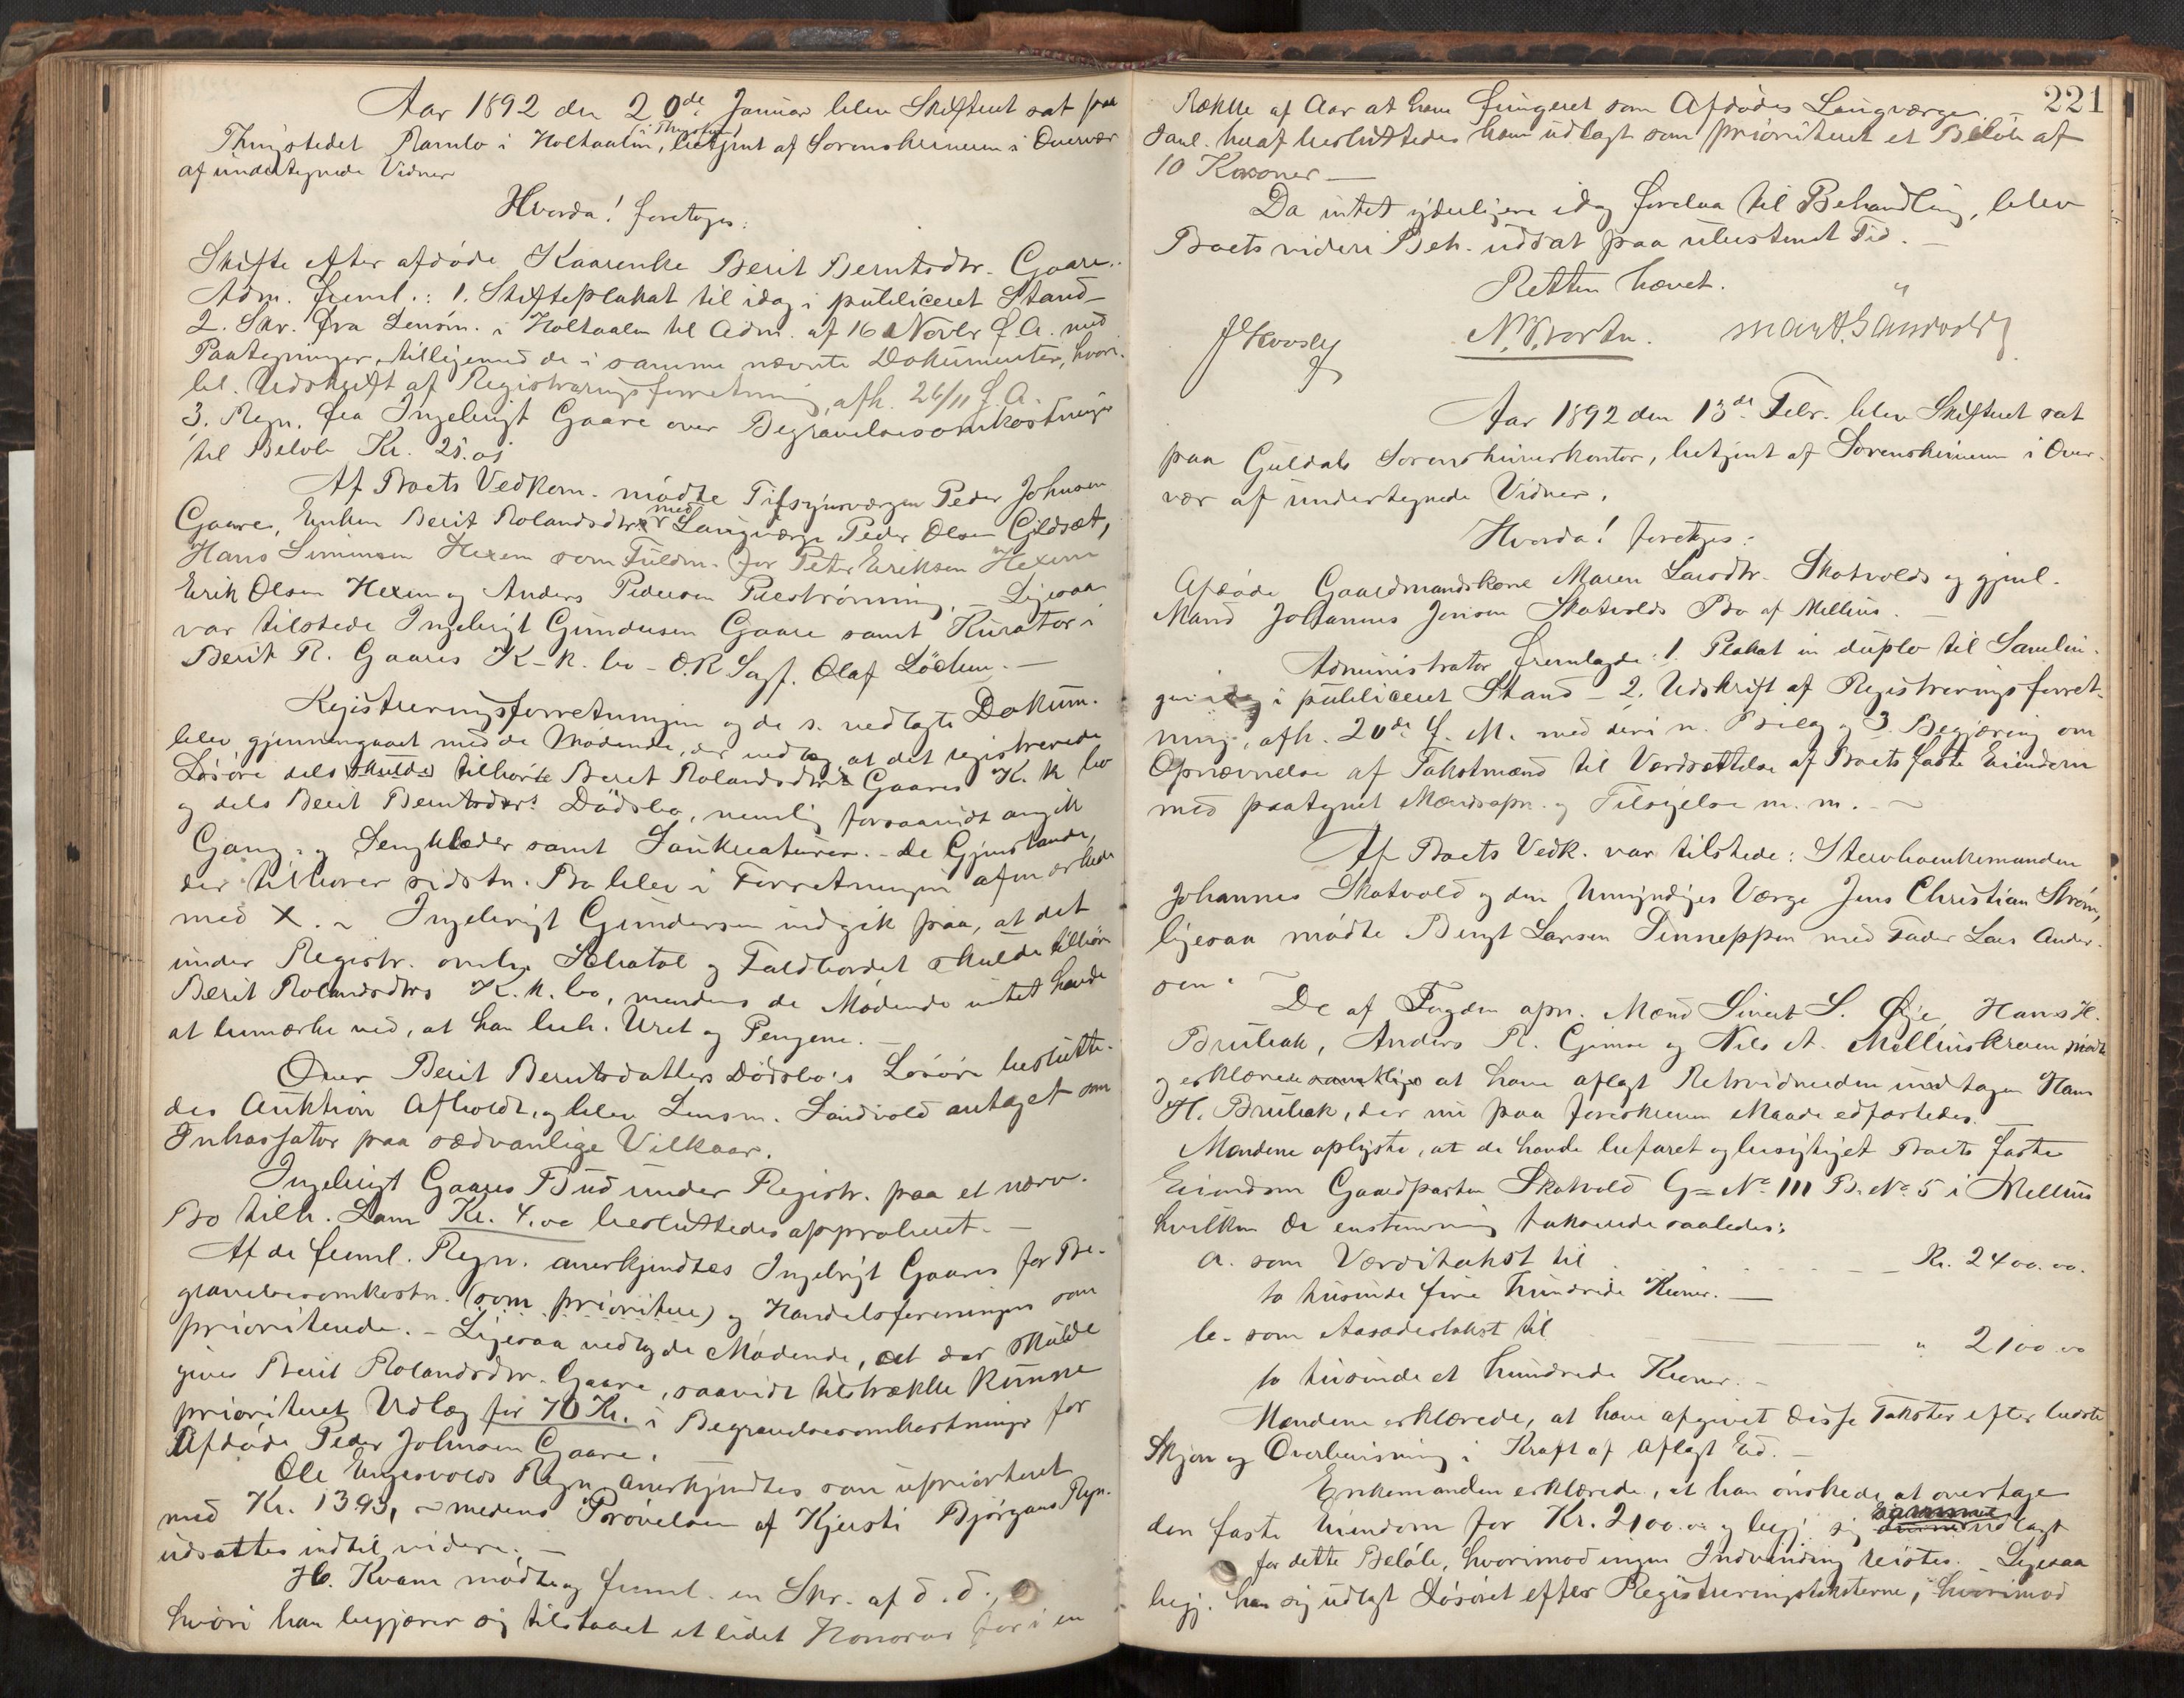 Aar 1892 den 20de Januar blev Skifteret sat paa
Thingstedet Ramlo i Holtaalen, betjent af Sorenskriveren i Overvær
af undertegnede Vidner
Hvorda! foretoges:
Skifte efter afdøde Kaarenke Berit Berntsdtr. Gaare.
Adm. freml.: 1. Skifteplakat til idag i publiceret Stand –
2. Skr. fra Lensm. i Holtaalen til Adm. af 16 Novbr f. A. med
Paategninger, tilligemed de i samme nævnte Dokumenter, hvori-
bl. Udskrift af Registreringsforretning, afh. 26/11 f. A.
3. Regn. fra Ingebrigt Gaare over Begravelsesomkostninger
til Beløb Kr. 25.05
Af Boets Vedkom. mødte Tilsynsværgen Peder Johnsen
Gaare, Enken Berit Rolandsdtr. med Laugværge Peder Olsen Gildset,
Hans Simensen Hexem som Fuldm. for Peter Eriksen Hexem
Erik Olsen Hexem og Anders Pedersen Præstrønning. – Ligesaa
var tilstede Ingebrigt Gundersen Gaare samt Kurator i
Berit R. Gaares K-k. bo – O.R Sagf. Olaf Löchen. –
Registreringsforretningen og de s. vedlagte Dokum.
blev gjennemgaaet med de Mødende, der vedtog, at det registrerede
Løsöre dels tilhørte Berit Rolandsdtrs Gaares K. k bo
og dels Berit Berntsdtrs Dödsbo, nemlig forsaavidt angik
Gang- og Sengklæder samt Saukreaturer. – De Gjenstande,
der tilhører sidstn. Bo blev i Forretningen afmærkede
med X. – Ingebrigt Gundersen indgik paa, at det
under Registr. omh. Schatol og Foldbordet skulde tilhøre
Berit Rolandsdtrs K. k. bo, medens de Mödende intet havde
at bemærke ved, at han beh. Uret og Pengene. –
Over Berit Berntsdatters Dödsbo's Løsöre beslutte-
des Auktion Afholdt, og blev Lensm. Sandvold antaget som
Inkassator paa sædvanlige Vilkaar.
Ingebrigt Gaares Bud under Registr. paa et nærv.
Bo tilh. Lam Kr. 4.00 besluttedes approberet. –
Af de freml. Regn. anerkjendtes Ingebrigt Gaares for Be-
gravelsesomkostn. (som prioritere) og Handelsforeningens som
prioriterede. – Ligesaa vedtog de Mödende, at der skulde
gives Berit Rolandsdtr. Gaare, saavidt tilstrække kunne
prioriteret Udlæg for 70 Kr. i Begravelsesomkostninger for
Afdøde Peder Johnsen Gaare.
Ole Engesvolds Regn anerkjendtes som uprioriteret
med Kr. 13.93, – medens Prövelsen af Kjersti Bjørgans Regn.
udsattes indtil videre. –
H. Kvam mødte og freml. en Skr. af d. d.,
hvori han begjærer sig tilstaaet et lidet Honorar for i en
221
Række af Aar at have fungeret som Afdødes Laugværge.
besluttedes ham udlagt som prioriteret et Beløb af
10 Kroner –
Da intet yderligere idag forelaa til Behandling, blev
Boets videre Beh. udsat paa ubestemt Tid. –
Retten hævet.
Aar 1892 den 13de Febr. blev Skifteret sat
paa Guldals Sorenskriverkontor, betjent af Sorenskriveren i Over-
vær af undertegnede Vidner.
Hvorda! foretoges:
Afdøde Gaardmandskone Maren Larsdtr. Skotvolds og gjenl.
Mand Johannes Jensen Skotvolds Bo af Melhus. –
Administrator fremlagde: 1. Plakat in duplo til Samlin-
gen idag i publiceret Stand – 2. Udskrift af Registreringsforret-
ning, afh. 20de f. M. med deri n. Bilag og 3. Begjæring om
Opnævnelse af Takstmænd til Værdsættelse af Boets faste Eiendom
med paategnet Mændsopn. og Tilsigelse m. m. –
Af Boets Vedk. var tilstede: Stervboenkemanden
Johannes Skotvold og den Umyndiges Værge Jens Christian Strøm,
ligesaa mødte Bengt Larsen Denneppen med Fader Lars Ander-
sen.
De af Fogden opn. Mænd Sivert S. Øie, Hans H.
Brubak, Anders R. Gimse og Nils A. Melhuskroen mødte
og erklærede samtlige at have aflagt Retsvidneeden undtagen Hans
H. Brubak, der nu paa foreskreven Maade edfæstedes. –
Mændene oplyste, at de havde befaret og besigtiget Boets faste
Eiendom Gaardparten Skotvold G= No 111 B. No 5 i Melhus
hvilken de enstemmig taxerede saaledes:
a. som Værditakst til Kr. 2400.00.
to tusinde fire hundrede Kroner. –
b. som Aasædestakst til " 2100.00
to tusinde et hundrede Kroner. –
Mændene erklærede, at have afgivet disse Takster efter bedste
Skjøn og Overbevisning i Kraft af aflagt Ed. –
Enkemanden erklærede, at han ønskede at overtage
den faste Eiendom for Kr. 2100.00 og begj. sig samme udlagt
for dette Beløb, hvorimod ingen Indvending reistes. Ligesaa
begj. han sig udlagt Løsøret efter Registreringstaksterne, hvorimod